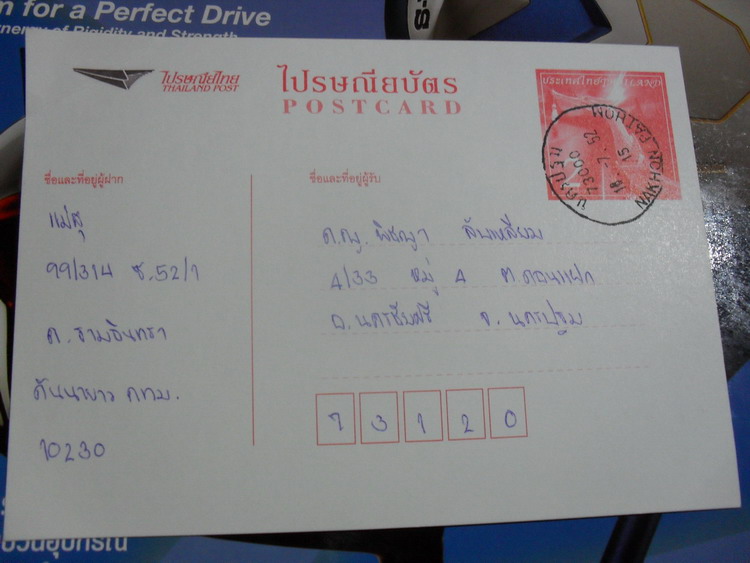 m for a Perfect Drive
nergy of Rigidity and Strength
ไปรษณีย์ไทย
THAILAND POST
ไปรษณียบัตร
POSTCARD
ประเทศไทย THAILAND
นครปฐม
73000
18.7.52
15
NAKHON PATHOM
ชื่อและที่อยู่ผู้ฝาก
แม่สุ
99/314 ซ.52/1
ถ. รามอินทรา
คันนายาว กทม.
10230
ชื่อและที่อยู่ผู้รับ
ด.ญ. พิชญา
4/33 หมู่ 4 ต.ดอนแฝก
อ.นครชัยศรี จ.นครปฐม
73120